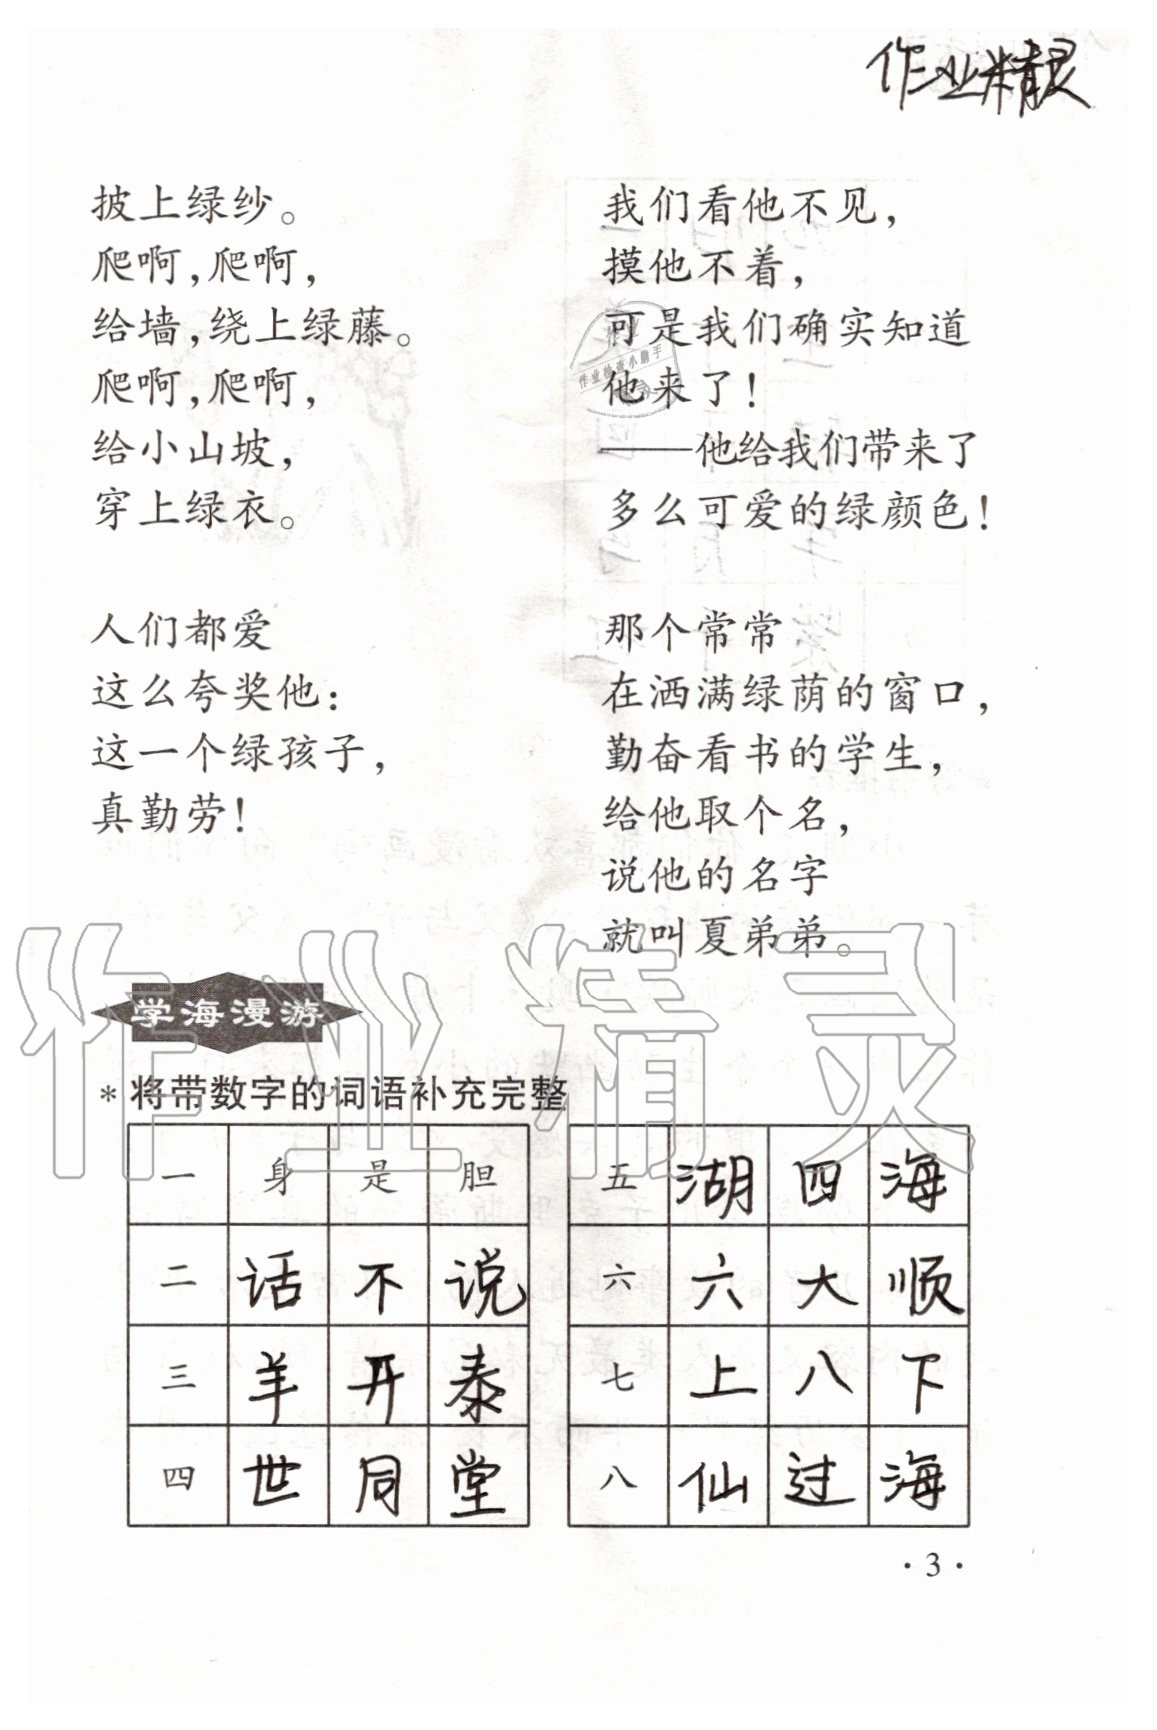 作业精灵
披上绿纱。
爬啊,爬啊,
给墙,绕上绿藤。
爬啊,爬啊,
给小山坡,
穿上绿衣。
人们都爱
这么夸奖他:
这一个绿孩子,
真勤劳!
我们看他不见,
摸他不着,
可是我们确实知道
他来了!
——他给我们带来了
多么可爱的绿颜色!
那个常常
在洒满绿荫的窗口,
勤奋看书的学生,
给他取个名,
说他的名字
就叫夏弟弟。
作业精灵
学海漫游
*将带数字的词语补充完整
一 身 是 胆
二 话 不 说
三 羊 开 泰
四 世 同 堂
五 湖 四 海
六 六 大 顺
七 上 八 下
八 仙 过 海
·3·